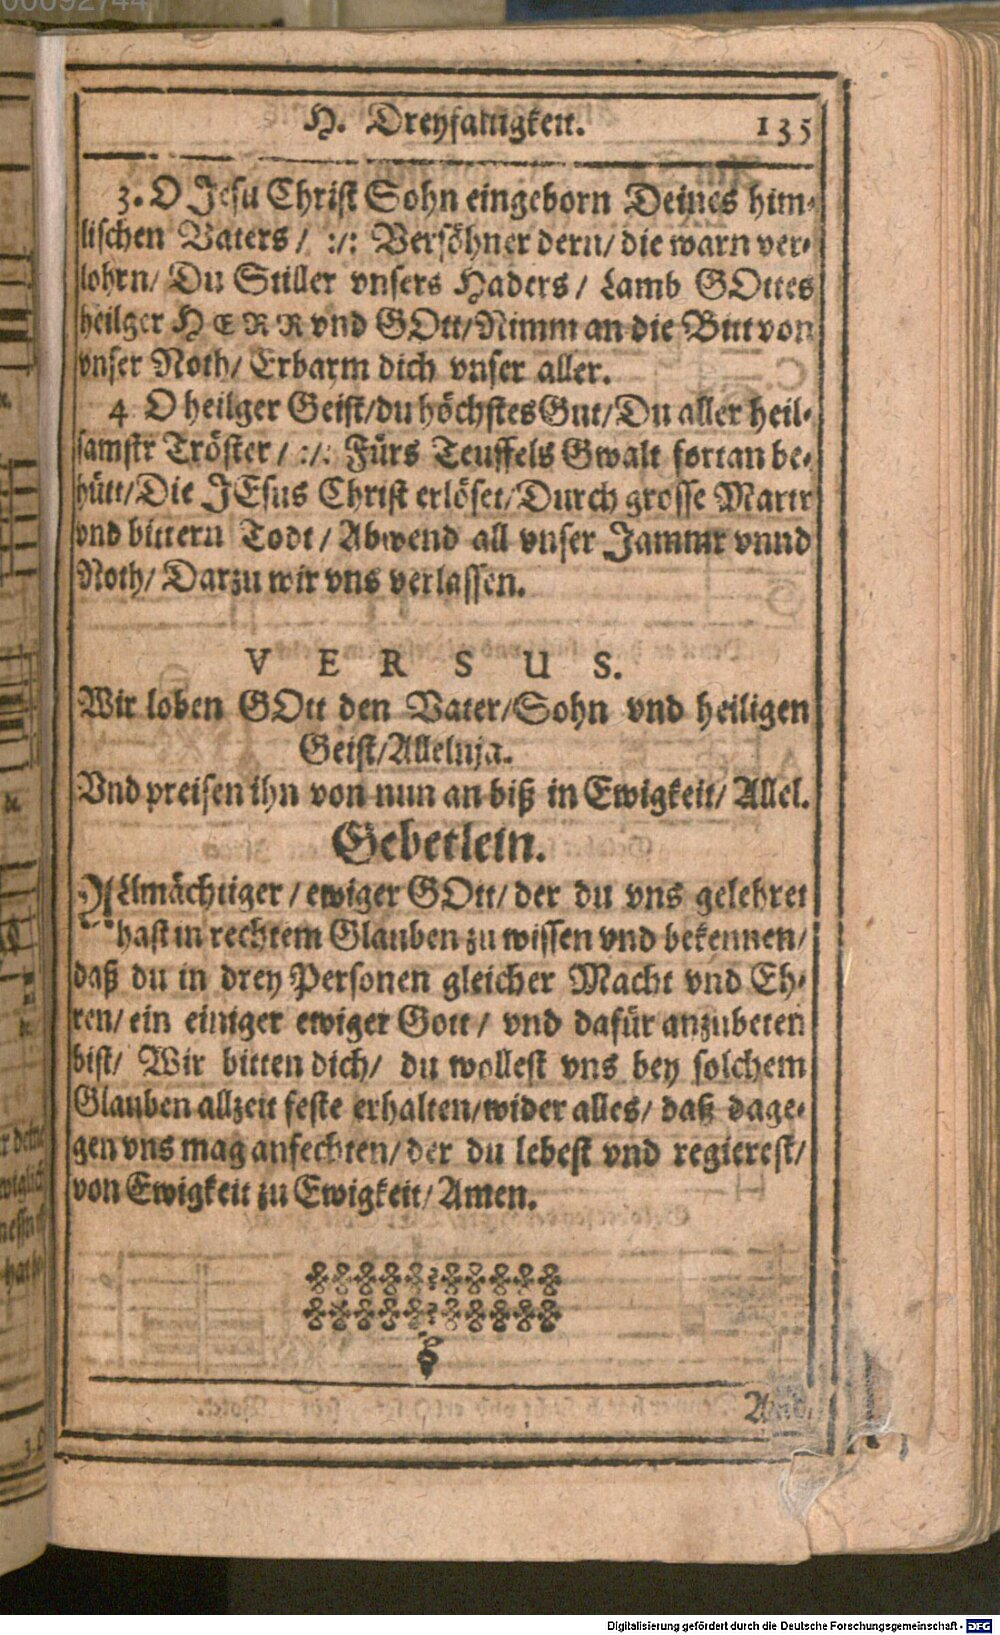 00092744
H. Dreyfaltigkeit. 135
3. O Jesu Christ Sohn eingeborn Deines him-
lischen Vaters / :/: Versöhner dern/ die warn ver-
lohrn/ Du Stiller vnsers Haders / Lamb GOttes
heilger HERR vnd GOtt/Nimm an die Bitt von
vnser Noth/ Erbarm dich vnser aller.
4 O heilger Geist/du höchstes Gut/Du aller heil-
samstr Tröster / :/: Fürs Teuffels Gwalt fortan be-
hütt/Die JEsus Christ erlöset/Durch grosse Martr
vnd bittern Todt / Abwend all vnser Jammr vnnd
Noth/ Darzu wir vns verlassen.
VERSUS.
Wir loben GOtt den Vater/Sohn vnd heiligen
Geist/Alleluja.
Vnd preisen ihn von nun an biß in Ewigkeit/ Allel.
Gebetlein.
ALlmächtiger / ewiger GOtt/ der du vns gelehret
hast in rechtem Glauben zu wissen vnd bekennen/
daß du in drey Personen gleicher Macht vnd Eh-
ren/ ein einiger ewiger Gott / vnd dafür anzubeten
bist/ Wir bitten dich/ du wollest vns bey solchem
Glauben allzeit feste erhalten/wider alles/ daß dage-
gen vns mag anfechten/ der du lebest vnd regierest/
von Ewigkeit zu Ewigkeit/ Amen.
Digitalisierung gefördert durch die Deutsche Forschungsgemeinschaft - DFG